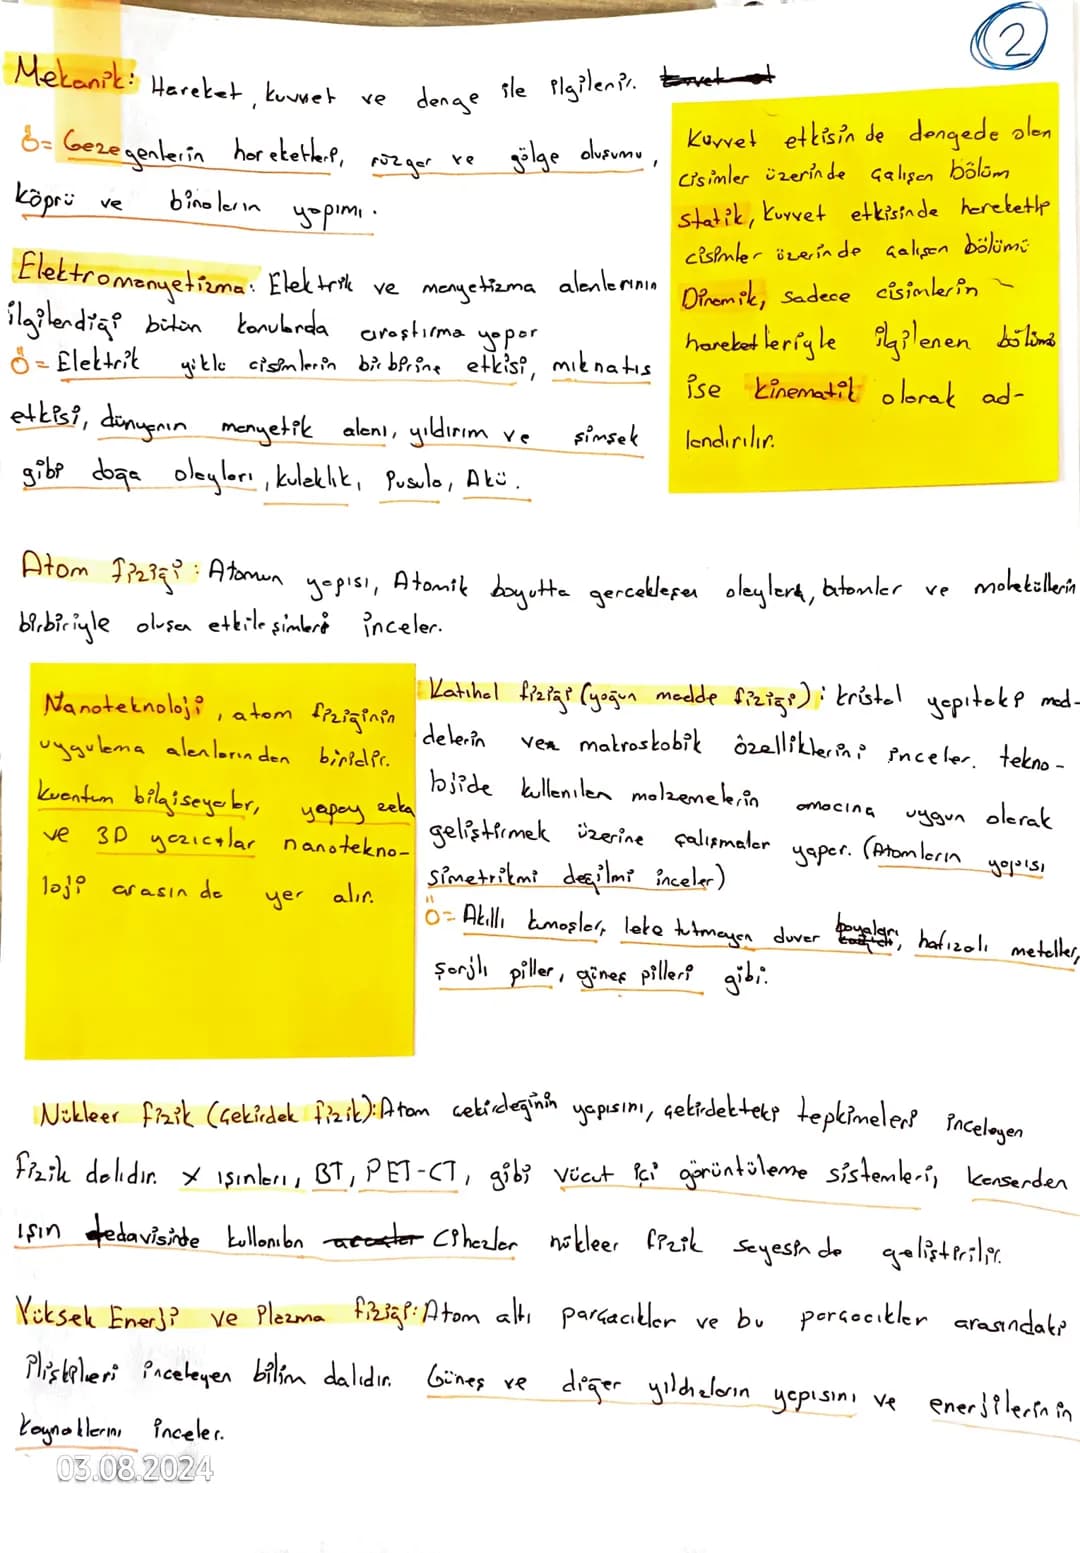 2
Mekanik: Hareket, kuvvet ve denge ile ilgilenir.
Ö= Gezegenlerin hareketleri, rüzgar ve gölge oluşumu,
köprü ve binaların yapımı.
Kuvvet etkisin de dengede olan
cisimler üzerinde çalışan bölüm
statik, kuvvet etkisinde hareketli
cisimler üzerinde çalışan bölümü
Dinamik, sadece cisimlerin
hareketleriyle ilgilenen bölümü
ise kinematik olarak ad-
landırılır.
Elektromanyetizma: Elektrik ve manyetizma alanlarının
ilgilendiği bütün konularda araştırma yapar
Ö= Elektrik yüklü cisimlerin birbirine etkisi, mıknatıs
etkisi, dünyanın manyetik alanı, yıldırım ve şimşek
gibi doğa olayları, kulaklık, Pusula, Akü.
Atom fiziği: Atomun yapısı, Atomik boyutta gerçekleşen olayları, atomlar ve moleküllerin
birbiriyle oluşan etkileşimleri inceler.
Nanoteknoloji, atom fiziğinin
uygulama alanlarından biridir.
kuantum bilgisayarlar, yapay zeka
ve 3D yazıcılar nanotekno-
loji arasında yer alır.
Katıhal fiziği (yoğun madde fiziği): kristal yapıtaki mad-
delerin ve makroskobik özelliklerini inceler. tekno-
lojide kullanılan malzemelerin amacına uygun olarak
geliştirmek üzerine çalışmalar yapar. (Atomların yapısı
simetrikmi değilmi inceler)
Ö= Akıllı kumaşlar, leke tutmayan duvar boyaları, hafızalı metaller,
şarjlı piller, güneş pilleri gibi.
Nükleer fizik (çekirdek fizik): Atom çekirdeğinin yapısını, çekirdekteki tepkimeleri inceleyen
fizik dalıdır. X ışınları, BT, PET-CT, gibi vücut içi görüntüleme sistemleri, kanserden
ışın tedavisinde kullanılan cihazlar nükleer fizik sayesinde geliştirilir.
Yüksek Enerji ve Plazma fiziği: Atom altı parçacıklar ve bu parçacıklar arasındaki
ilişkileri inceleyen bilim dalıdır. Güneş ve diğer yıldızların yapısını ve enerjilerinin
kaynaklarını inceler.
03.08.2024